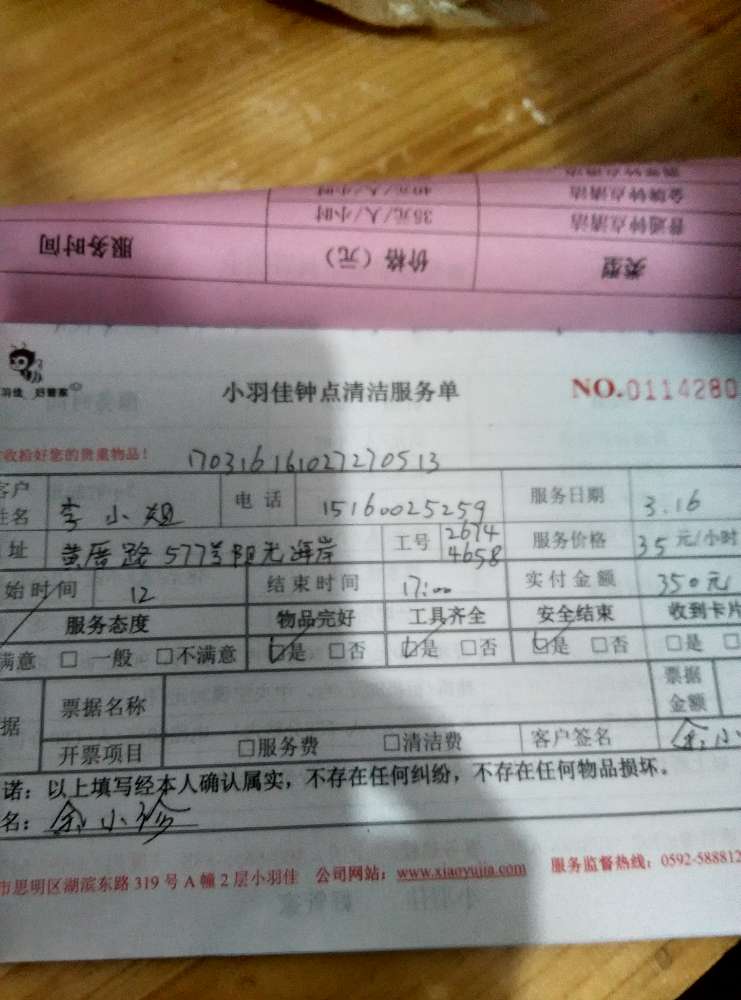 高级钟点清洁
金牌钟点清洁 40元/人/小时
普通钟点清洁 35元/人/小时
类型 价格（元） 服务时间
羽佳 好管家
小羽佳钟点清洁服务单 NO.0114280
收拾好您的贵重物品！ 170316161027270513
客户姓名 李小姐 电话 15160025259 服务日期 3.16
址 黄厝路577号阳光海岸 工号 2674 4658 服务价格 35元/小时
始时间 12 结束时间 17:00 实付金额 350元
服务态度 物品完好 工具齐全 安全结束 收到卡片
满意 □一般 □不满意 □是 □否 □是 □否 □是 □否 □是 □
据 票据名称 票据金额
开票项目 □服务费 □清洁费 客户签名 余小
诺：以上填写经本人确认属实，不存在任何纠纷，不存在任何物品损坏。
名：余小
市思明区湖滨东路319号A幢2层小羽佳 公司网站：www.xiaoyujia.com 服务监督热线：0592-588812